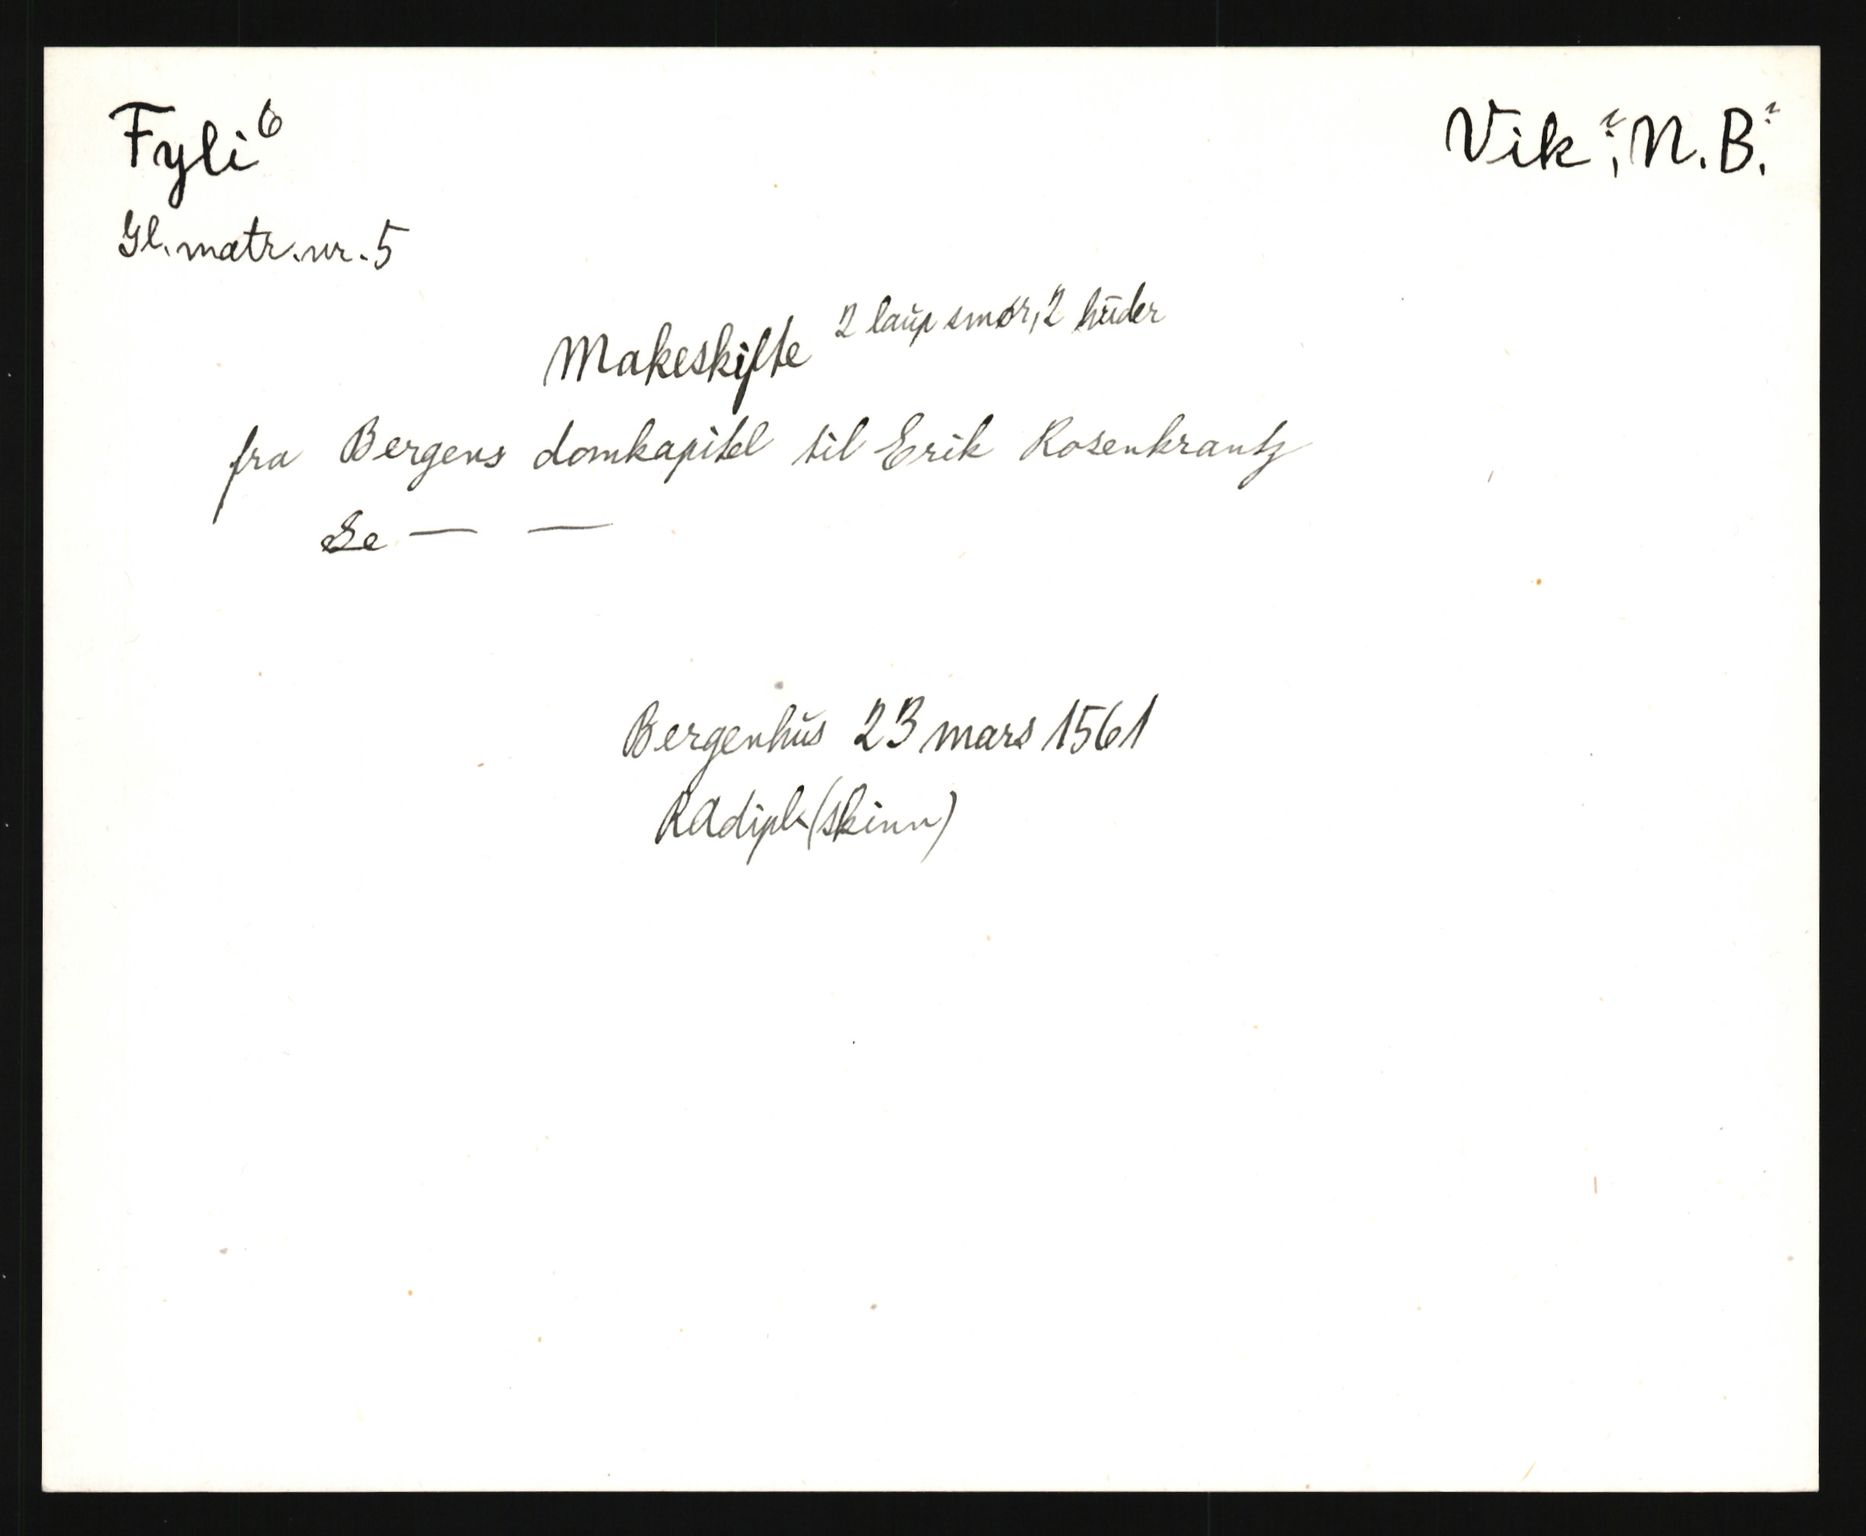 Fyli⁶ Vik, N.B.
Gl. matr. nr. 5
Makeskifte 2 laup smør, 2 huder
fra Bergens domkapitel til Erik Rosenkrantz
Se — —
Bergenhus 23 mars 1561
RAdipl. (skinn)